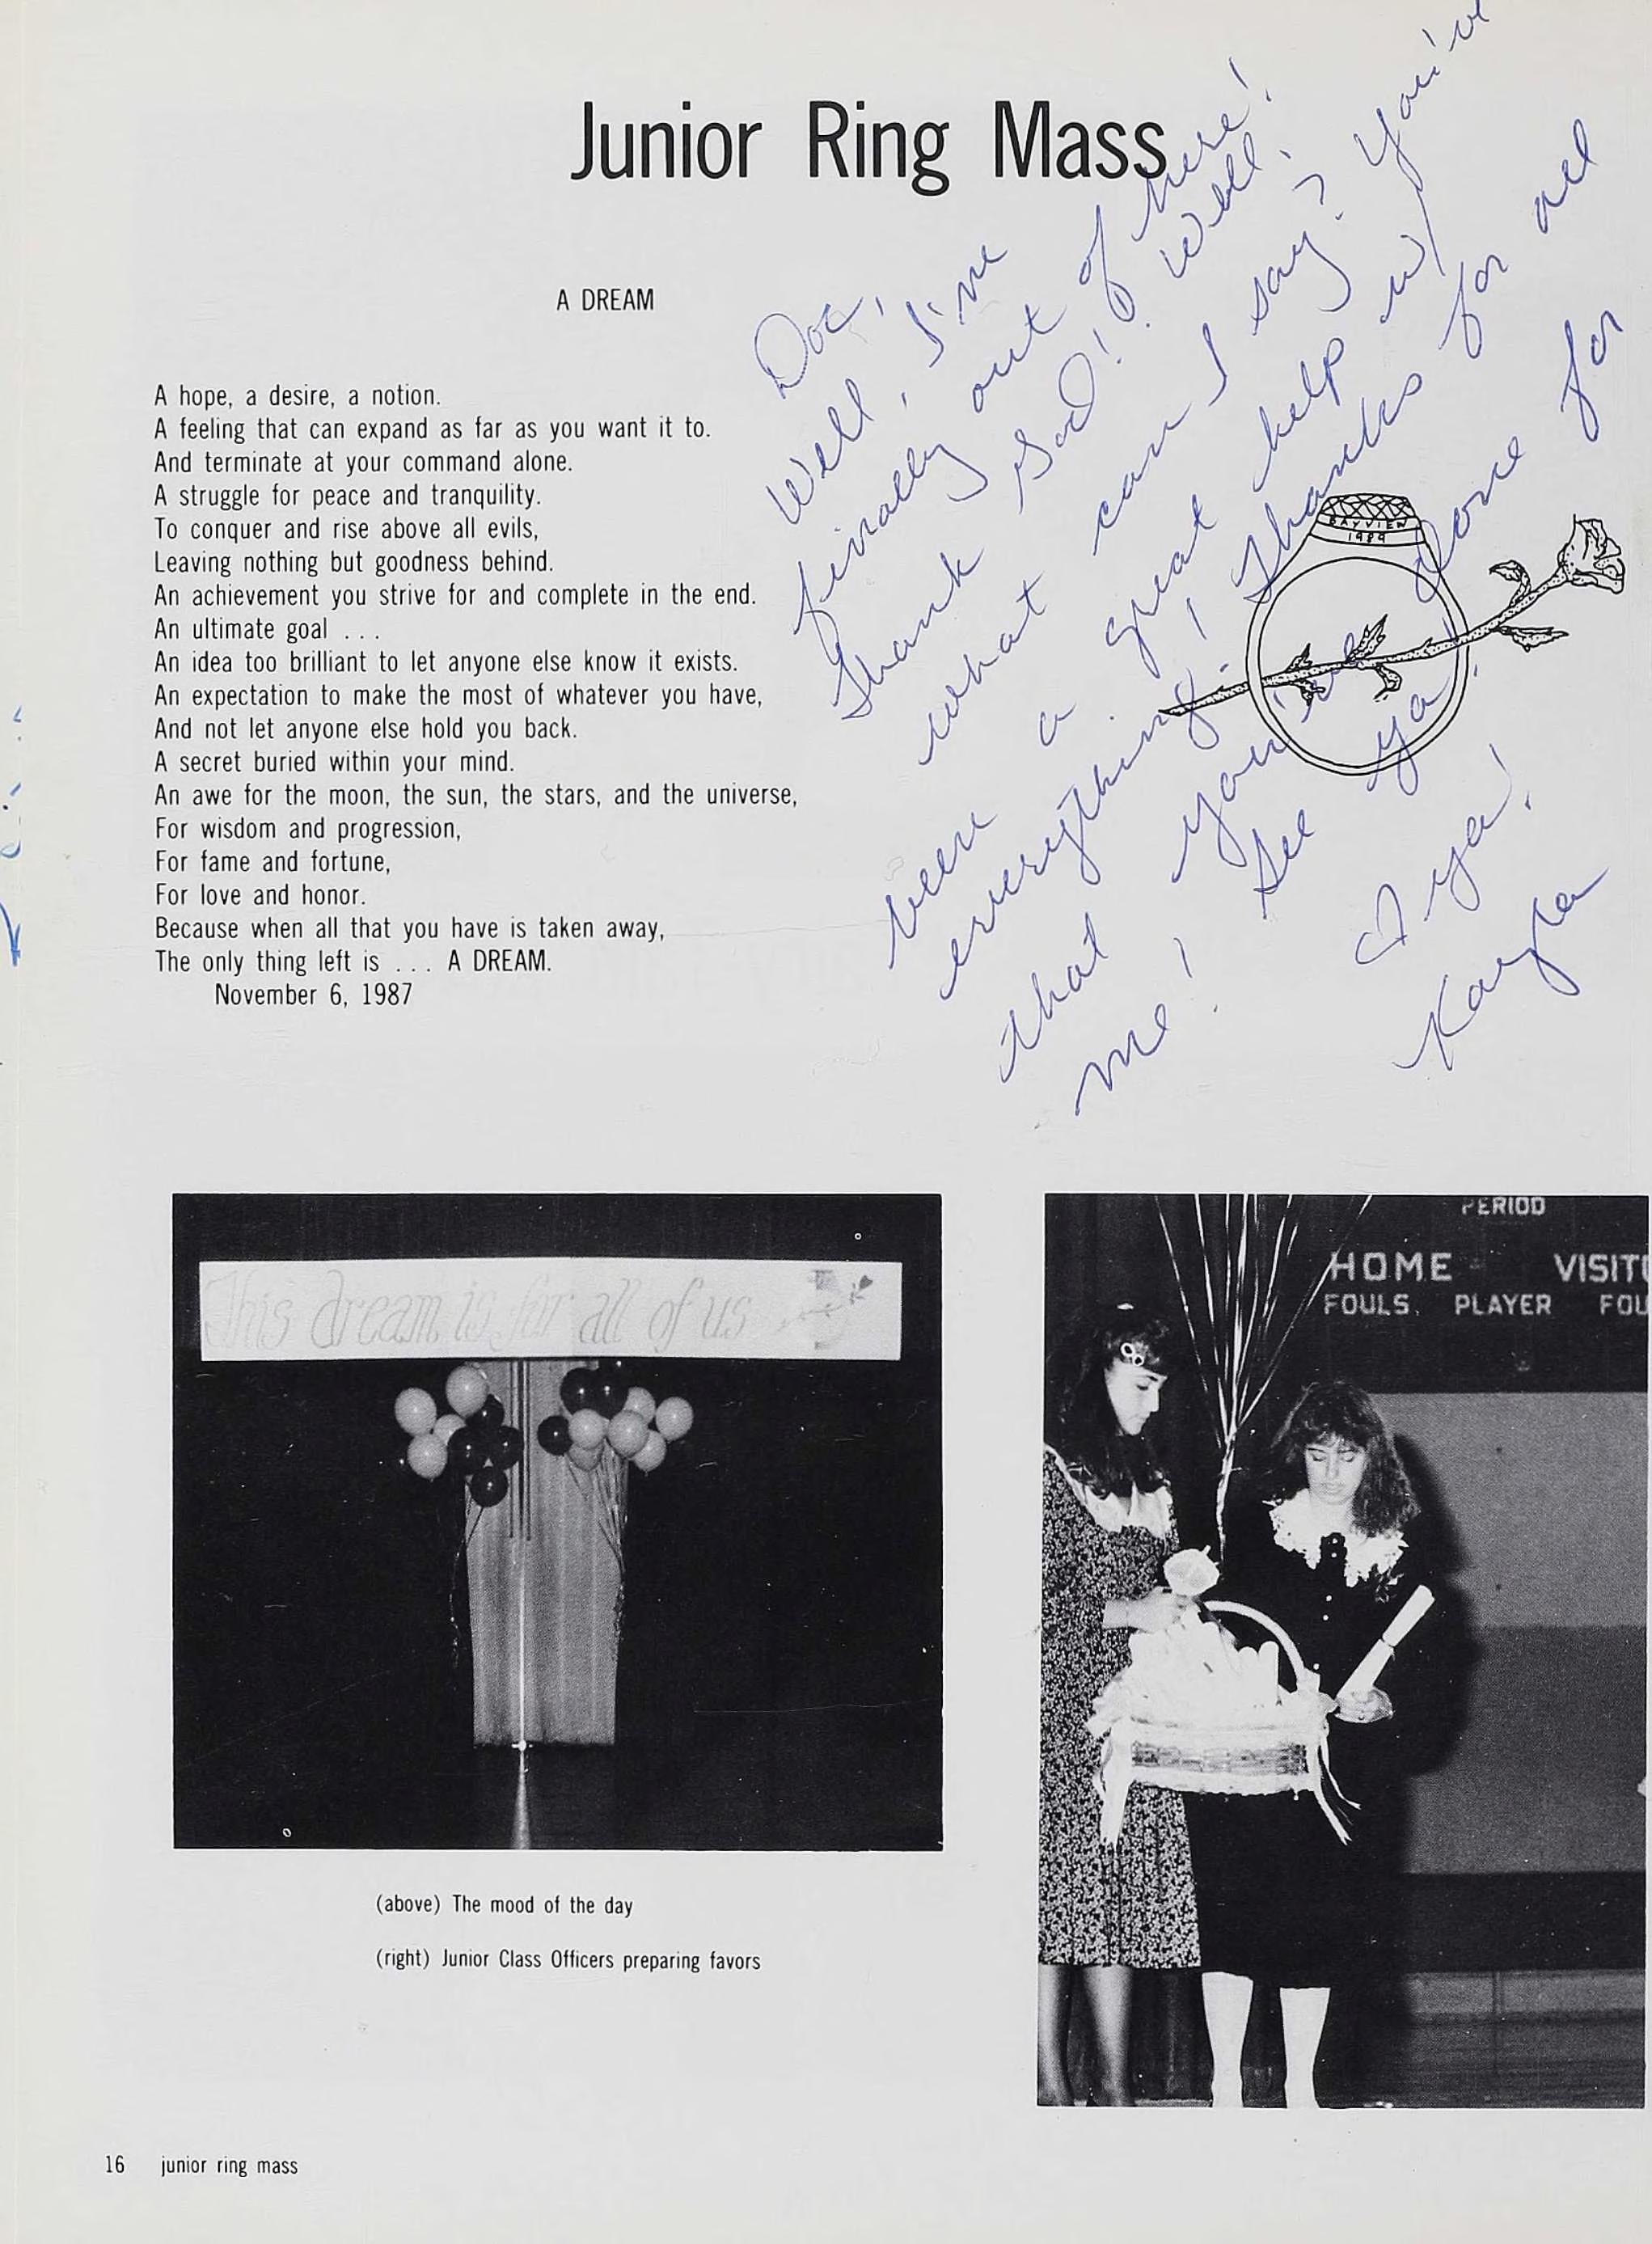 Junior Ring Mass
A DREAM
A hope, a desire, a notion.
A feeling that can expand as far as you want it to.
And terminate at your command alone.
A struggle for peace and tranquility.
To conquer and rise above all evils,
Leaving nothing but goodness behind.
An achievement you strive for and complete in the end.
An ultimate goal . . .
An idea too brilliant to let anyone else know it exists.
An expectation to make the most of whatever you have,
And not let anyone else hold you back.
A secret buried within your mind.
An awe for the moon, the sun, the stars, and the universe,
For wisdom and progression,
For fame and fortune,
For love and honor.
Because when all that you have is taken away,
The only thing left is . . . A DREAM.
November 6, 1987
Doc,
Well, I'm
finally out of here!
Thank God! Well,
what can I say? You've
been a great help w/
everything! Thanks for all
that you've done for
me! See ya!
ya!
Kayla
BAYVIEW
1989
This dream is for all of us
PERIOD
HOME VISIT
FOULS PLAYER FOU
(above) The mood of the day
(right) Junior Class Officers preparing favors
16 junior ring mass